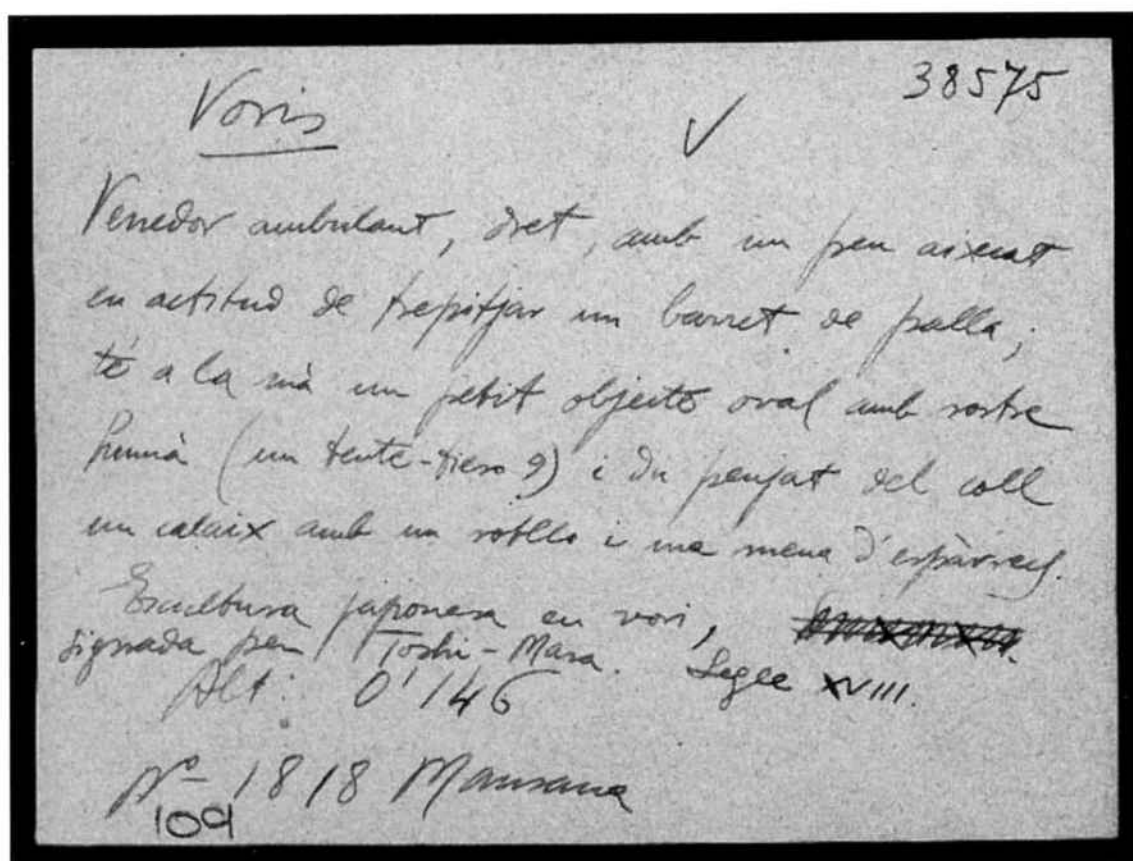 38575
Voris
✓
Venedor ambulant, dret, amb un peu aixecat
en actitud de trepitjar un barret de palla;
té a la mà un petit objecte oval amb rostre
humà (un tente-tieso?) i du penjat del coll
un calaix amb un rotllo i una mena d'espàrrecs.
Escultura japonesa en vori,
signada per Toshi-Masa. Segle XVIII.
Alt: 0'146
Nº 1818 Mansana
109